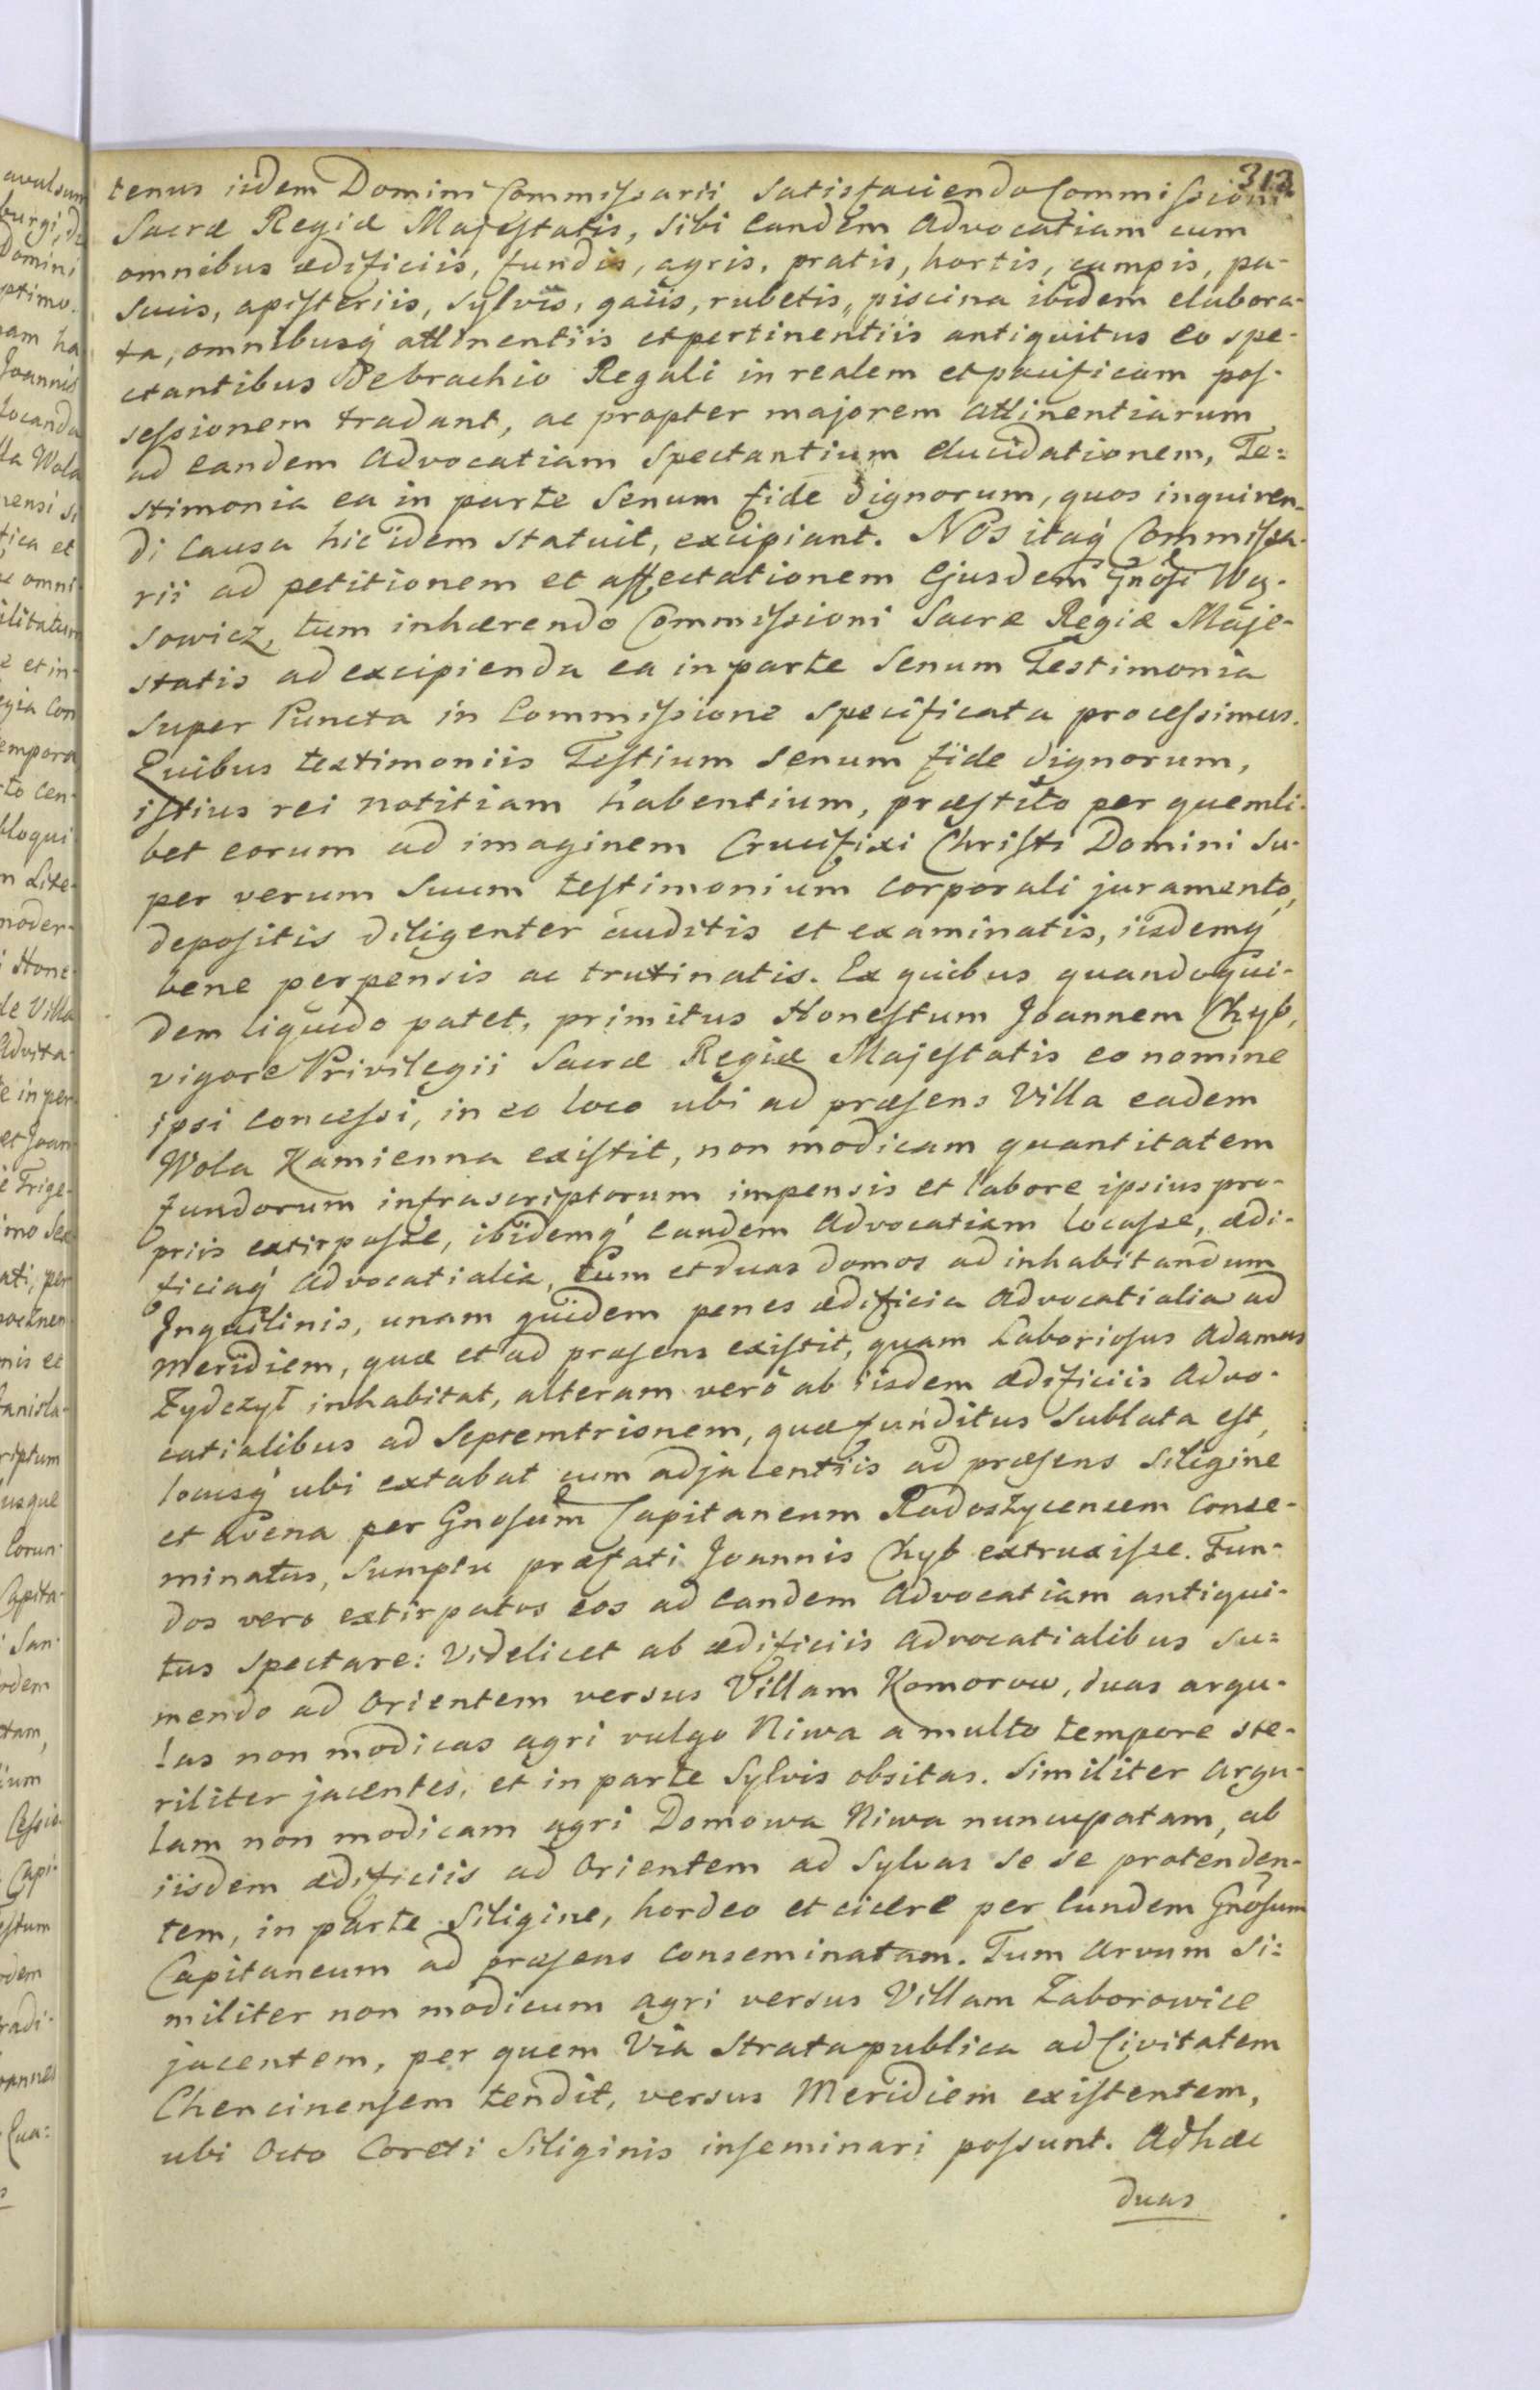 313
tenus iidem Domini Commissarii satisfaciendo Commissioni
Sacræ Regiæ Majestatis, sibi eandem Advocatiam cum
omnibus ædificiis, fundis, agris, pratis, hortis, campis, pa-
scuis, apisteriis, sylvis, gaiis, rubetis, piscina ibidem elabora-
ta, omnibusq́ attinentiis et pertinentiis antiquitus eo spe-
ctantibus de brachio Regali in realem et pacificam pos-
sessionem tradant, ac propter majorem attinentiarum
ad eandem Advocatiam spectantium elucidationem, Te=
stimonia ea in parte Senum fide dignorum, quos inquiren-
di causa hic idem statuit, excipiant. Nos itaq́ Commissa-
rii ad petitionem et affectationem ejusdem Gnosi Wą-
sowicz, tum inhærendo Commissioni Sacræ Regiæ Maje-
statis ad excipienda ea in parte Senum Testimonia
super Puncta in Commissione specificata processimus.
Quibus testimoniis Testium senum fide dignorum,
istius rei notitiam habentium, præstito per quemli-
bet eorum ad imaginem Crucifixi Christi Domini su-
per verum suum testimonium corporali juramento,
depositis diligenter auditis et examinatis, iisdemq́
bene perpensis ac trutinatis. Ex quibus quandoqui-
dem liquido patet, primitus Honestum Joannem Chyb,
vigore Privilegii Sacræ Regiæ Majestatis eo nomine
ipsi concessi, in eo loco ubi ad præsens Villa eadem
Wola Kamienna existit, non modicam quantitatem
fundorum infrascriptorum impensis et labore ipsius pro-
priis extirpasse, ibidemq́ eandem Advocatiam locasse, ædi-
ficiaq́ Advocatialia, tum et duas domos ad inhabitandum
Inquilinis, unam quidem penes ædificia Advocatialia ad
meridiem, quæ et ad præsens existit, quam Laboriosus Adamus
Zydczył inhabitat, alteram verò ab iisdem ædificiis Advo-
catialibus ad Septemtrionem, quæ funditus sublata est,
locusq́ ubi extabat cum adjacentiis ad præsens siligine
et avena per Gnosum Capitaneum Radoszycensem conse-
minatus, sumptu præfati Joannis Chyb extruxisse. Fun-
dos vero extirpatos eos ad eandem Advocatiam antiqui-
tus spectare: Videlicet ab ædificiis Advocatialibus su=
mendo ad Orientem versus Villam Komorow, duas argu-
las non modicas agri vulgo Niwa a multo tempore ste-
riliter jacentes, et in parte sylvis obsitas. Similiter argu-
lam non modicam agri Domowa Niwa nuncupatam, ab
iisdem ædificiis ad Orientem ad sylvas se se protenden-
tem, in parte siligine, hordeo et cicere per eundem Gnosum
Capitaneum ad præsens conseminatam. Tum arvum si=
militer non modicum agri versus Villam Zaborowice
jacentem, per quem Via Strata publica ad Civitatem
Chencinensem tendit, versus Meridiem existentem,
ubi Octo Coreti Siliginis inseminari possunt. Adhæc
duas